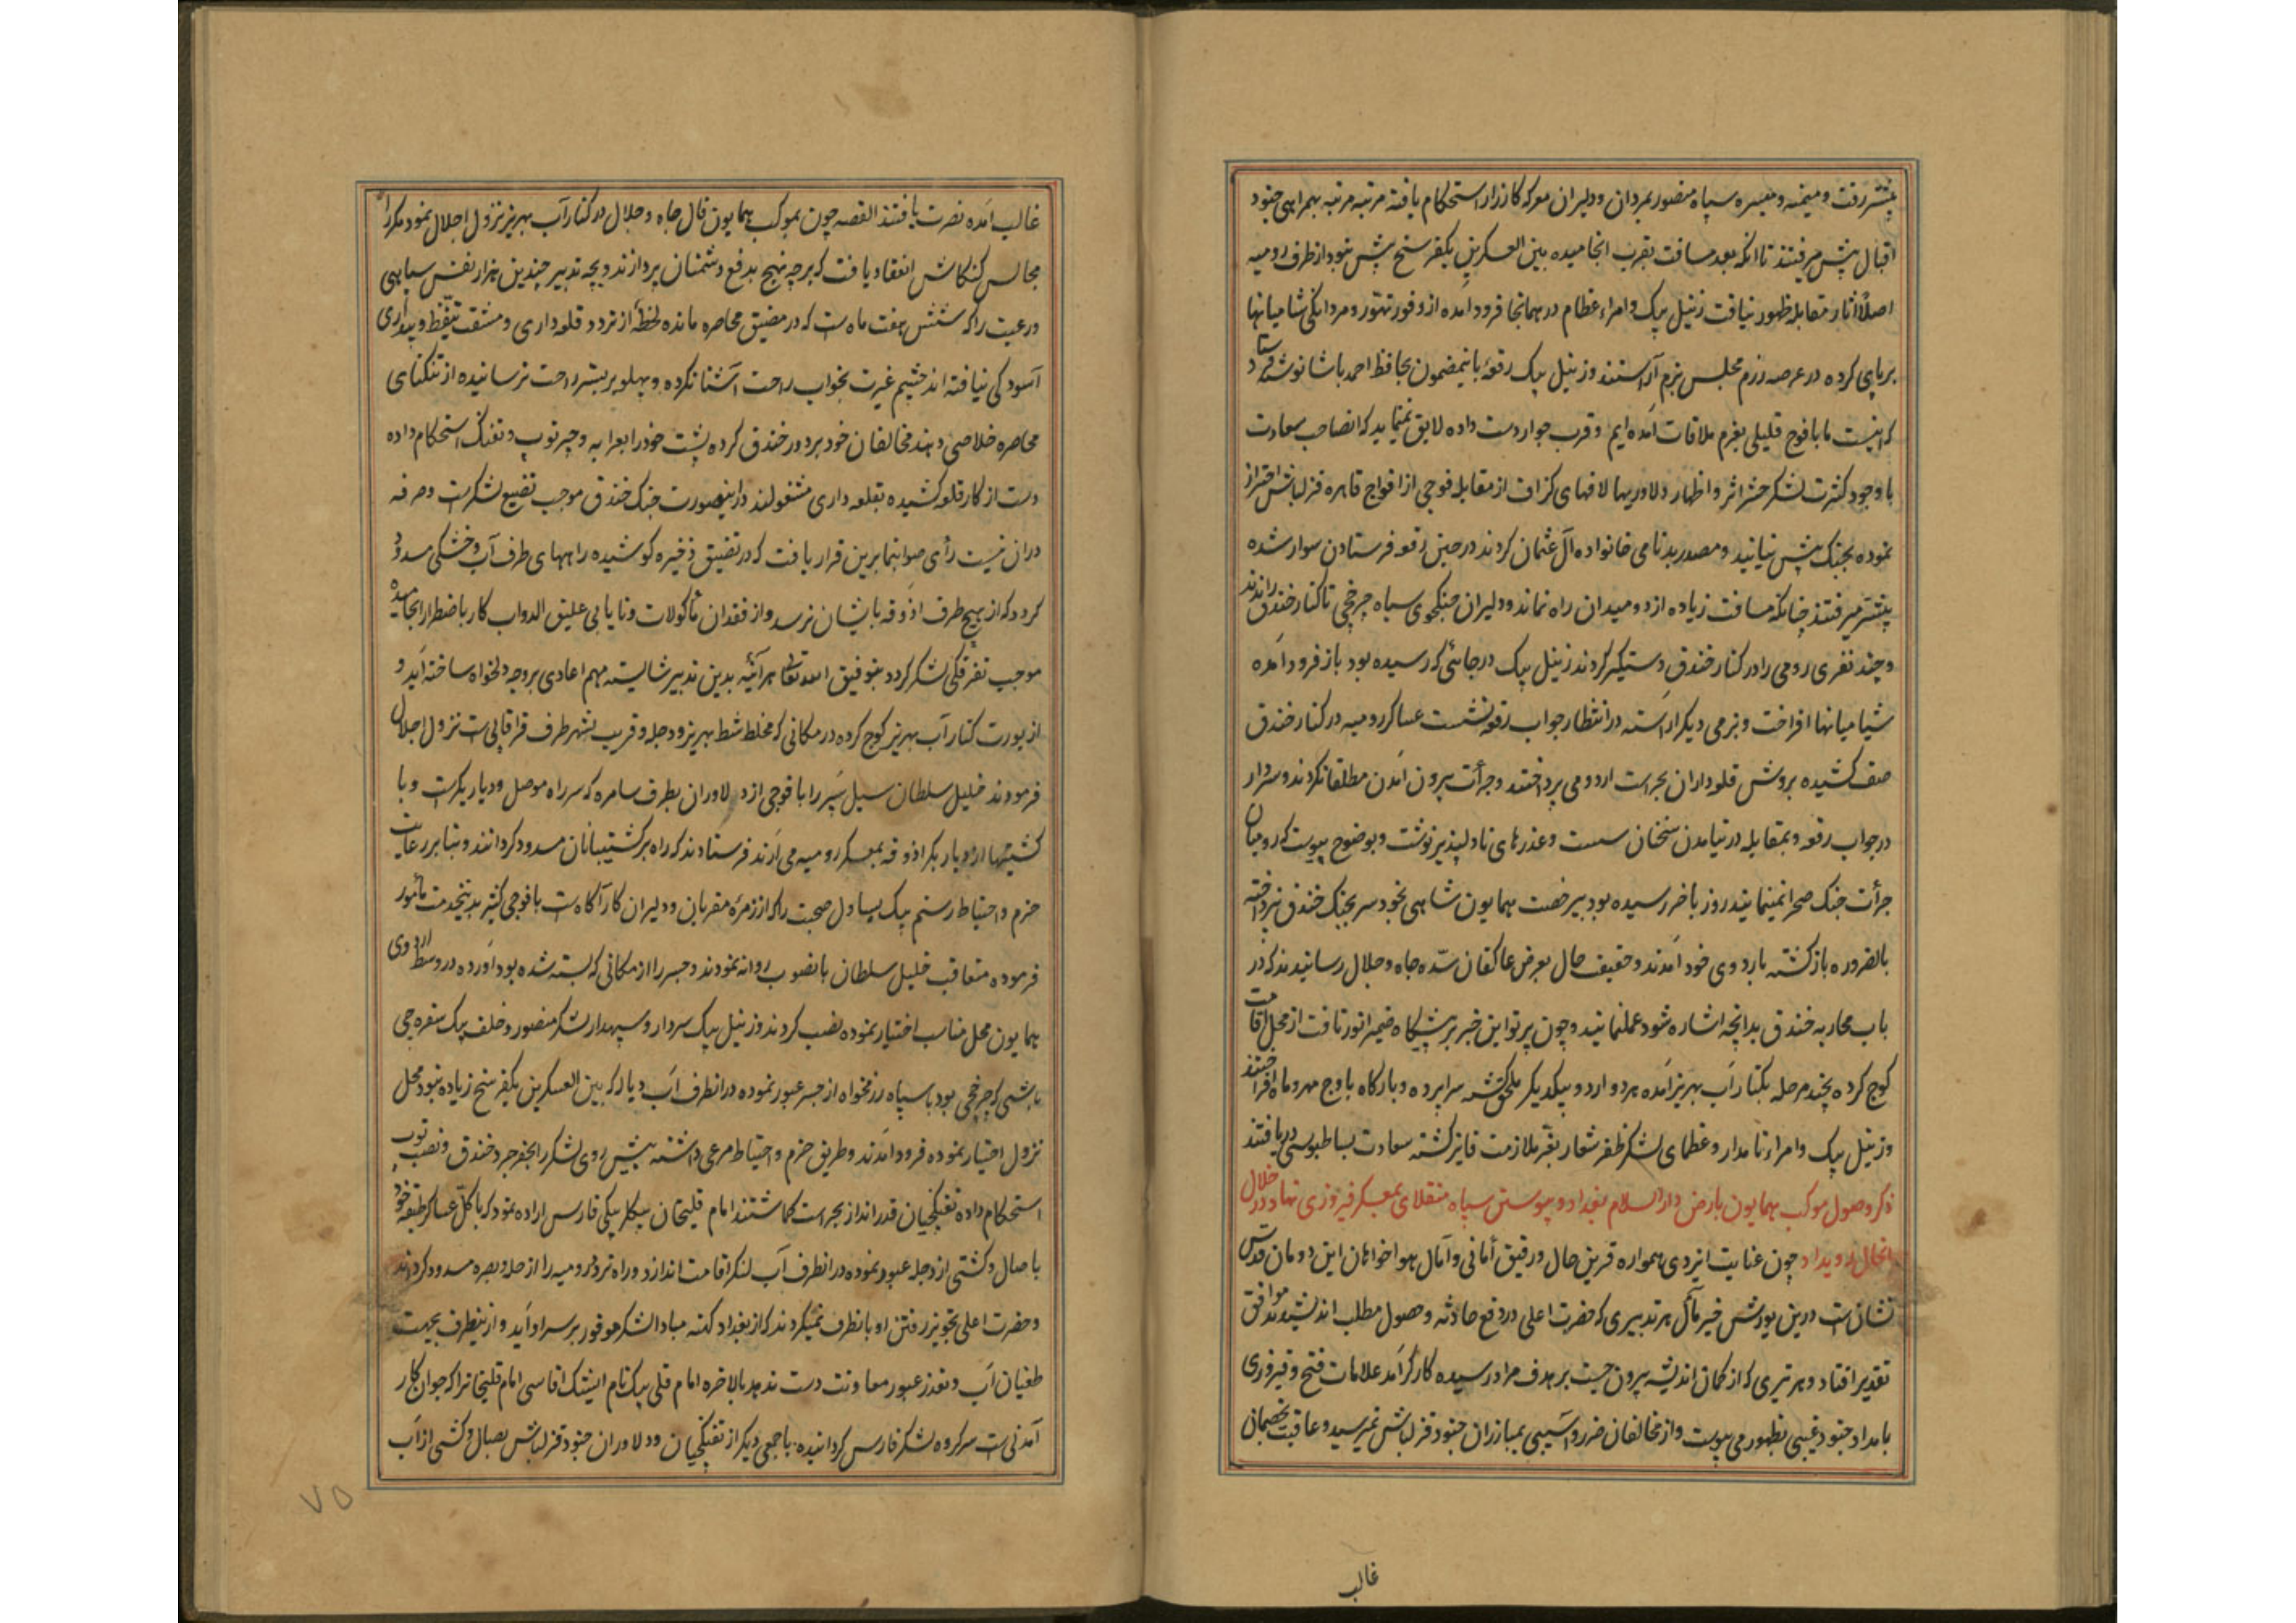 پیشتر رفت و میمنه و میسره سپاه منصور بمردان و دلیران معرکه کارزار استحکام یافته مرتبه مرتبه بهمراهی جنود
اقبال پیش میرفتند تا آنکه بعد مسافت بقرب انجامیده بین العسکرین یکفرسخ بیش نبود از طرف رومیه
اصلاً آثار مقابله ظهور نیافت زینل بیک و امراء عظام در همانجا فرود آمده از وفور تهور و مردانگی شامیانها
برپای کرده در عرصه رزم مجلس بزم آراستند و زینل بیک رقعهٔ باینمضمون بحافظ احمد پاشا نوشته فرستاد
که اینست ما با فوج قلیلی بعزم ملاقات آمده‌ایم و قرب جوار دست داده لایق نمینماید که انصاحب سعادت
با وجود کثرت لشکر حشر اثر و اظهار دلاوریها لافهای گزاف از مقابله فوجی از افواج قاهره قزلباش احتراز
نموده بجنگ پیش نیایید و مصدر بدنامی خانواده آل عثمان کردند در حین رقعه فرستادن سوار شده
پیشتر میرفتند چنانکه مسافت زیاده از دو میدان راه نماند و دلیران جنگجوی سپاه چرخچی تا کنار خندق راندند
و چند نفری رومی را در کنار خندق دستگیر کردند زینل بیک در جائی که رسیده بود باز فرود آمده
شیامیانها افراخت و بزمی دیگر آراسته در انتظار جواب رقعه نشست عساکر رومیه در کنار خندق
صف کشیده بروش قلعه داران بحراست اردو می پرداختند و جرأت بیرون آمدن مطلقا نکردند و سردار
در جواب رقعه و بمقابله در نیامدن سخنان سست و عذرهای نادلپذیر نوشت و بوضوح پیوست که رومیان
جرأت جنگ صحرا نمینمایند روز باخر رسیده بود بیرخصت همایون شاهی بخود سر بجنگ خندق نپرداخته
بالضروره بازگشته باردوی خود آمدند و حقیقت حال بعرض عاکفان سدّه جاه و جلال رسانیدند که در
باب محاربه خندق بدانچه اشاره شود عملنمایند و چون پرتو این خبر بر پیشگاه ضمیر انور تافت از محل اقامت
کوچ کرده بچند مرحله بکنار آب بهریز آمده هر دو اردو بیکدیگر ملحق گشته سراپرده و بارگاه باوج مهر و ماه افراختند
و زینل بیک و امراء نامدار و عظمای لشکر ظفر شعار بعزّ ملازمت فایز گشته سعادت بساطبوسی دریافتند
ذکر وصول موکب همایون بارض دارالسلام بغداد و پیوستن سپاه منقلای بمعسکر فیروزی نهاد و در خلال
انحال رویداد چون عنایت ایزدی همواره قرین حال و رفیق أمانی و آمال هواخواهان این دودمان قدس
نشان است درین یورش خیر مآل هر تدبیری که حضرت اعلی در دفع حادثه و حصول مطلب اندیشیدند موافق
تقدیر افتاد و هر تیری که از کمان اندیشه بیرون جست بر هدف مراد رسیده کارگر آمد علامات فتح و فیروزی
بامداد جنود غیبی بظهور می پیوست و از مخالفان ضرر و آسیبی بمبارزان جنود قزلباش نمیرسید و عاقبت بخصمان
غالب
غالب آمده نصرت یافتند القصه چون بموکب همایون فال جاه و جلال در کنار آب بهریز نزول اجلال نمود مکررا
مجالس کنکاش انعقاد یافت که بر چه نهج بدفع دشمنان پردازند و بچه تدبیر چندین هزار نفس سپاهی
و رعیت را که شش هفت ماه است که در مضیق محاصره مانده لحظهٔ از تردد قلعه داری و مشقت تیقظ و بیداری
آسودگی نیافته‌اند چشم غیرت بخواب راحت آشنا نکرده و پهلو بر بستر راحت نرسانیده از تنگنای
محاصره خلاصی دهند مخالفان خود بر دور خندق کرده پشت خود را بعرابه و چپر توپ و تفنگ استحکام داده
دست از کار قلعه کشیده بقلعه داری مشغولند در اینصورت جنگ خندق موجب تضییع لشکر است و صرفه
در آن نیست رأی صوابنما برین قرار یافت که در تضییق ذخیره کوشیده راههای طرف آب و خشکی مسدود
گردد که از هیچ طرف آذوقه بایشان نرسد و از فقدان مأکولات و نایابی علیق الدواب کار باضطرار انجامیده
موجب تفرقگی لشکر گردد بتوفیق الله تعالی هر آینه بدین تدبیر شایسته مهم اعادی بر وجه دلخواه ساخته آید و
از یورت کنار آب بهریز کوچ کرده در مکانی که مخلط شط بهریز و دجله و قریب بشهر طرف قراقابی است نزول اجلال
فرمودند خلیل سلطان سیل سپر را با فوجی از دلاوران بطرف سامره که سر راه موصل و دیاربکرست و با
کشتیها از دیاربکر آذوقه بمعسکر رومیه می آرند فرستادند که راه بر کشتیبانان مسدود گردانند و بنا بر رعایت
حزم و احتیاط رستم بیک یساول صحبت را که از زمرهٔ مقربان و دلیران کارآگاه است با فوجی کثیر بدینخدمت مأمور
فرموده متعاقب خلیل سلطان بانصوب روانه نمودند و جسر را از مکانی که بسته شده بود آورده در وسط اردوی
همایون محل مناسب اختیار نموده نصب کردند و زینل بیک سردار و سپهدار لشکر منصور و خلف بیک سفره‌چی
باشی که چرخچی بود با سپاه رزمخواه از جسر عبور نموده در انطرف آب دیاله که بین العسکرین یکفرسخ زیاده نبود محل
نزول اختیار نموده فرود آمدند و طریق حزم و احتیاط مرعی داشته پیش روی لشکر را بحفر جر و خندق و نصب توپ
استحکام داده تفنگچیان قدرانداز بحراست گماشتند امام قلیخان بیگلربیگی فارس اراده نمود که با کل عساکر طبقه خود
با صال و کشتی از دجله عبور نموده در انطرف آب لنگر اقامت اندازد و راه تردد رومیه را از حله و بصره مسدود گردانند
و حضرت اعلی تجویز رفتن او بانطرف نمیکردند که از بغداد کهنه مبادا لشکر موفور بر سر او آید و از ینطرف بجهت
طغیان آب و تعذر عبور معاونت دست ندهد بالاخره امام قلی بیک نام ایشک آقاسی امام قلیخانرا که جوان کار
آمدنی است سرکرده لشکر فارس گردانیده با جمعی دیگر از تفنگچیان و دلاوران جنود قزلباش بصال و کشتی از آب
۷۵